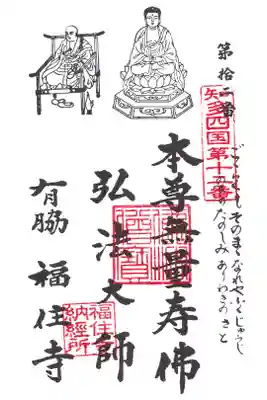 第拾二番
知多四国第十二番
そのまゝなれやふくじゅうじ
たのしみありわきのさと
本尊無量寿佛
弘法大師
有脇 福住寺
福住寺
納經所